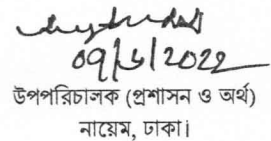 ০৭/৬/2022
উপপরিচালক (প্রশাসন ও অর্থ)
নায়েম, ঢাকা।